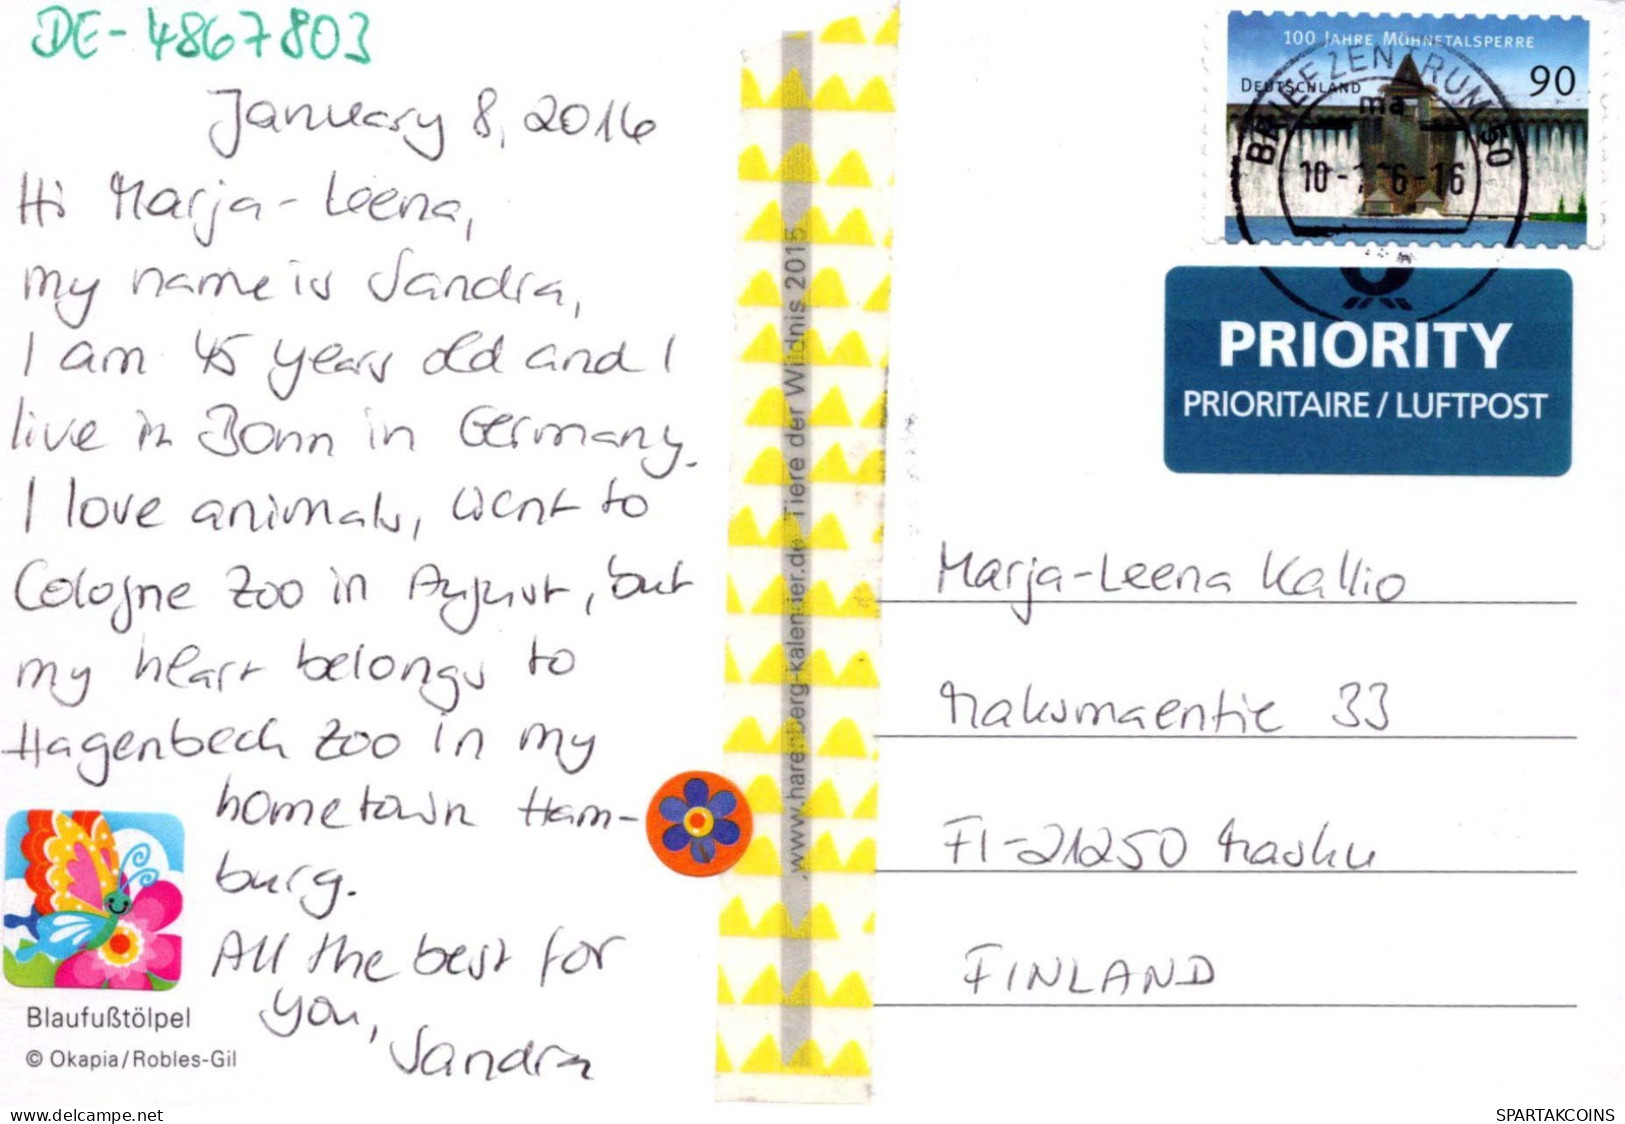 DE-4867803
January 8, 2016
Hi Marja-Leena,
my name is Sandra,
I am 45 years old and I
live in Bonn in Germany.
I love animals, went to
Cologne Zoo in August, but
my heart belongs to
Hagenbeck Zoo in my
hometown Ham-
burg.
All the best for
you,
Sandra
Blaufußtölpel
© Okapia/Robles-Gil
www.harenberg-kalender.de Tiere der Wildnis 2015
100 JAHRE MÖHNETALSPERRE
DEUTSCHLAND
90
BRIEFZENTRUM 50
ma
10 - 16
PRIORITY
PRIORITAIRE / LUFTPOST
Marja-Leena Kallio
Maksmaentie 33
FI-21250 Masku
FINLAND
www.delcampe.net
SPARTAKCOINS